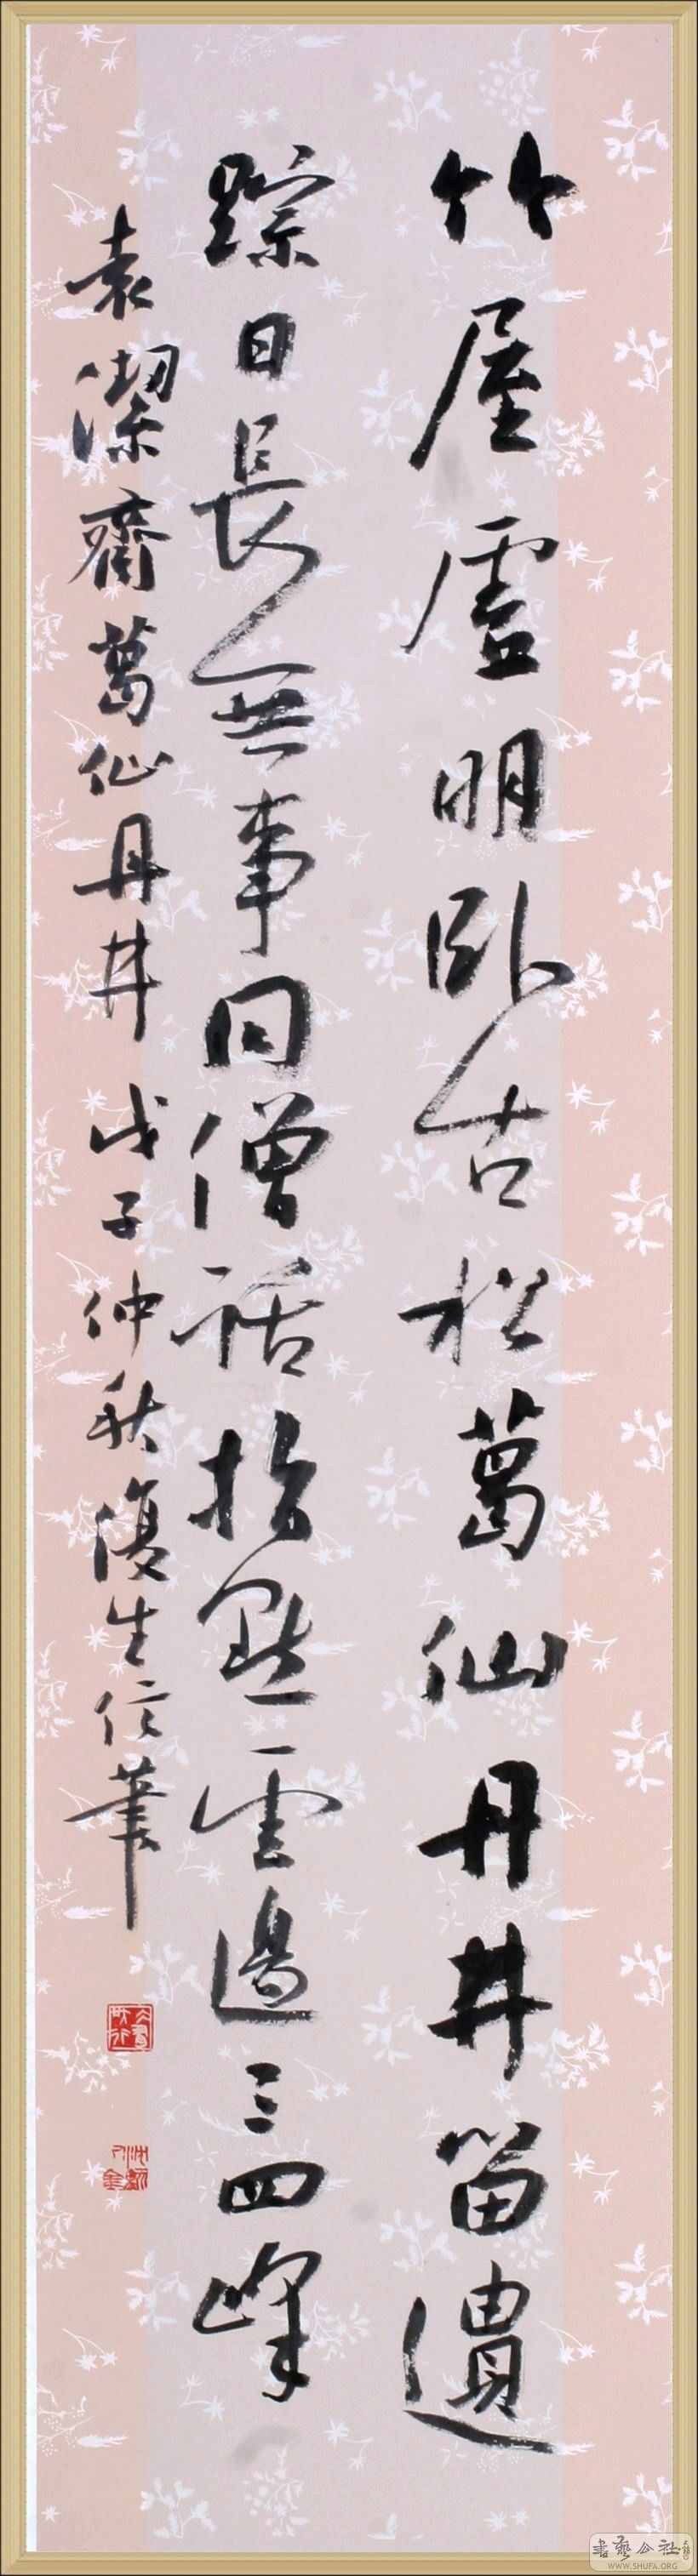 竹屋虛明卧古松葛仙丹井留遺
踪日長無事同僧話指點雲邊三四峰
袁潔齋葛仙丹井戊子仲秋復生信筆
書藝公社
WWW.SHUFA.ORG